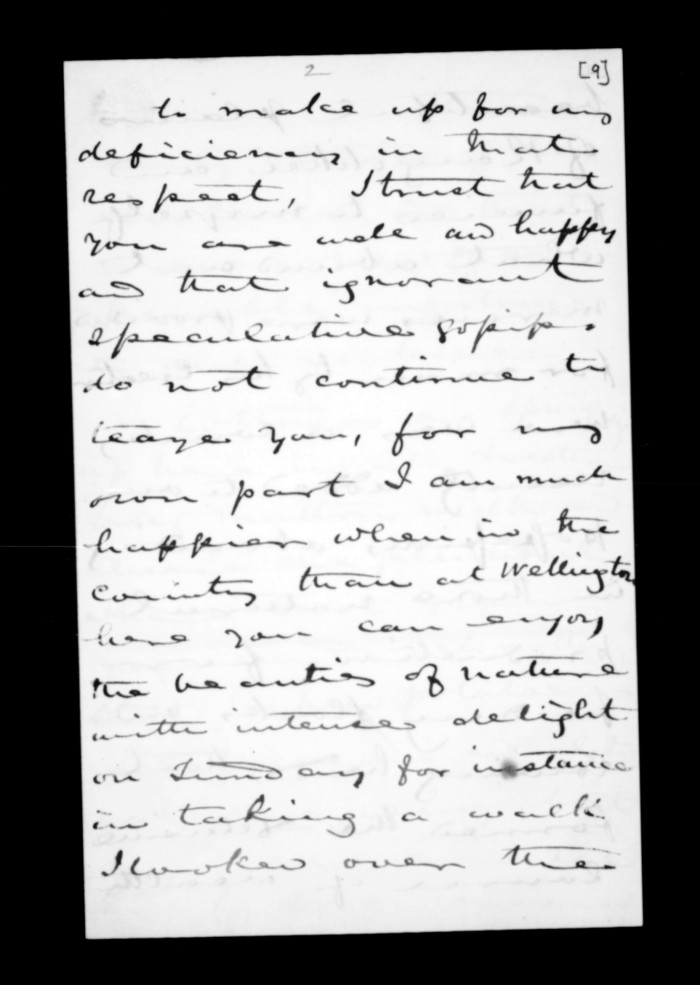 2
[9]
to make up for my
deficiency in that
respect, I trust that
you are well and happy
and that ignorant
speculative gossips
do not continue to
teaze you, for my
own part I am much
happier when in the
country than at Wellington
here you can enjoy
the beauties of nature
with intense delight
on Sunday for instance
in taking a walk
I looked over the